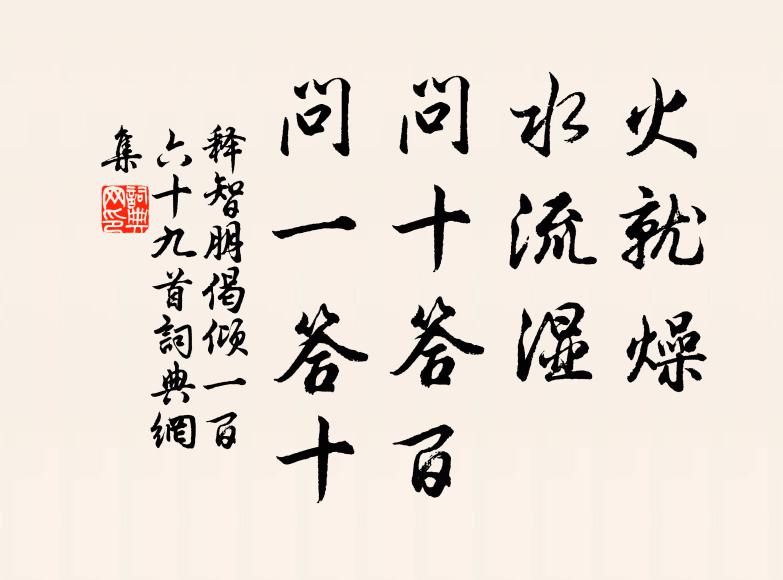 火就燥
水流湿
问十答百
问一答十
释智朋偈倾一百
六十九首詞典網
集
詞典网印